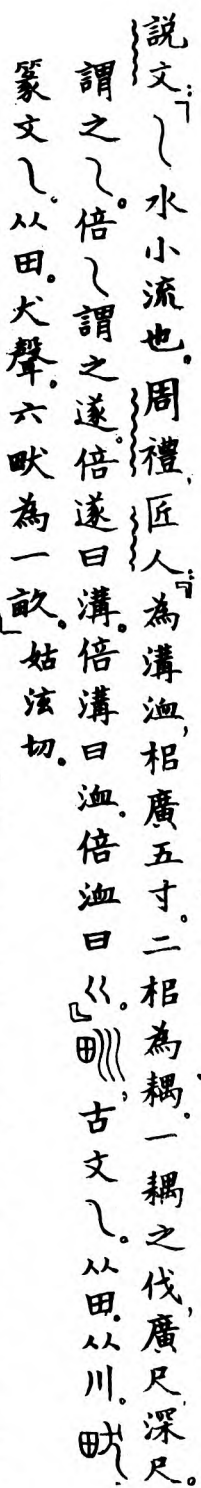 說文：「𡿨水小流也。周禮，匠人：『為溝洫，梠廣五寸。二梠為耦。一耦之伐，廣尺，深尺。
謂之𡿨。倍𡿨謂之遂。倍遂曰溝。倍溝曰洫。倍洫曰巜。』甽，古文𡿨。从田。从川。畎，
篆文𡿨。从田。犬聲。六畎為一畝。」姑泫切。